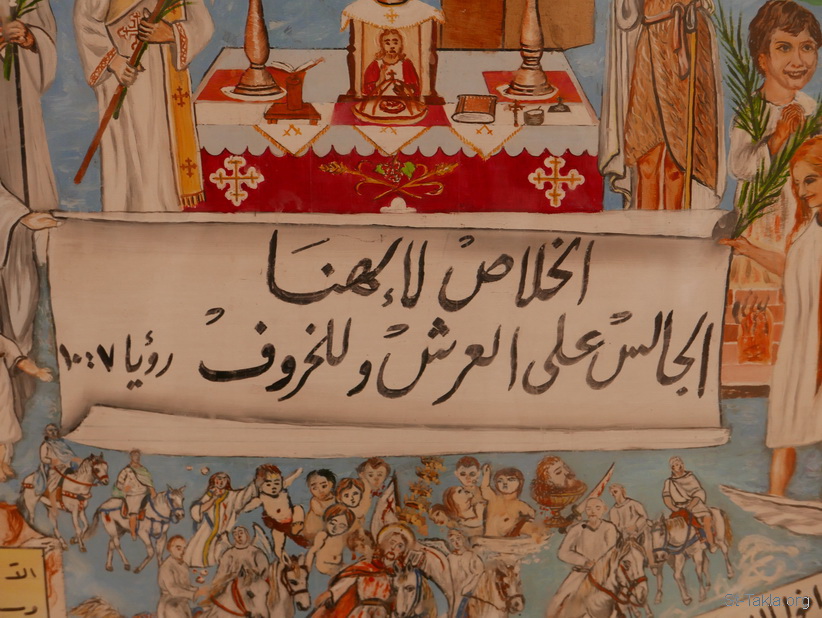 الخلاص لإلهنا
الجالس على العرش وللخروف
رؤيا ٧:١٠
St-Takla.org